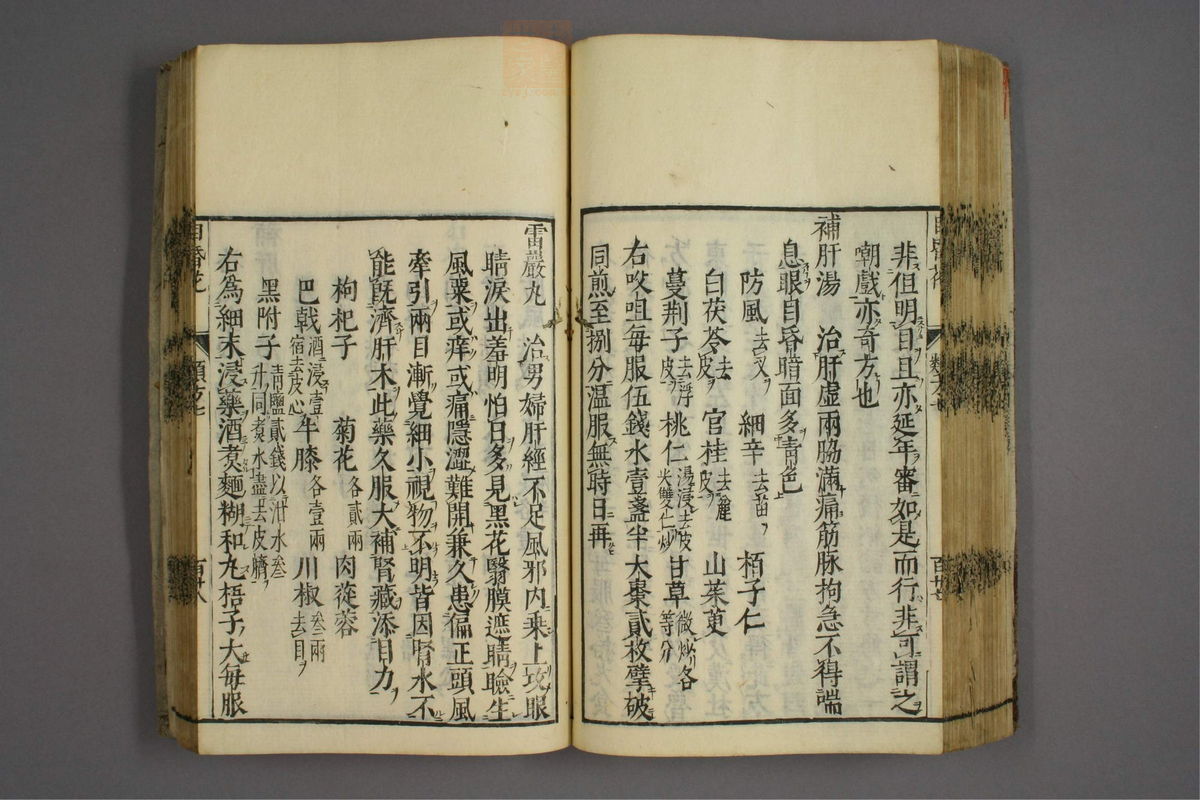 非但明目且亦延年審如是而行非可謂之
嘲戲亦奇方也
補肝湯 治肝虛兩脇滿痛筋脉拘急不得喘
息眼目昏暗面多青色
防風去叉 細辛去苗 栢子仁
白茯苓去皮 官桂去麤皮 山茱萸
蔓荆子去浮皮 桃仁湯浸去皮尖雙仁炒 甘草微炒各等分
右㕮咀每服伍錢水壹盞半大棗貳枚擘破
同煎至捌分温服無時日再
雷巖丸 治男婦肝經不足風邪内乗上攻眼
睛淚出羞明怕日多見黑花翳膜遮睛瞼生
風粟或痒或痛隱澀難開兼久患偏正頭風
牽引兩目漸覺細小視物不明皆因腎水不
能旣濟肝木此藥久服大補腎藏添目力
枸杞子 菊花各貳兩 肉蓯蓉
巴戟酒浸壹宿去皮心 牛膝各壹兩 川椒叁兩去目
黑附子青鹽貳錢以泔水叁升同煮水盡去皮臍
右為細末浸藥酒煮麵糊和丸梧子大每服
類方七
百廿八